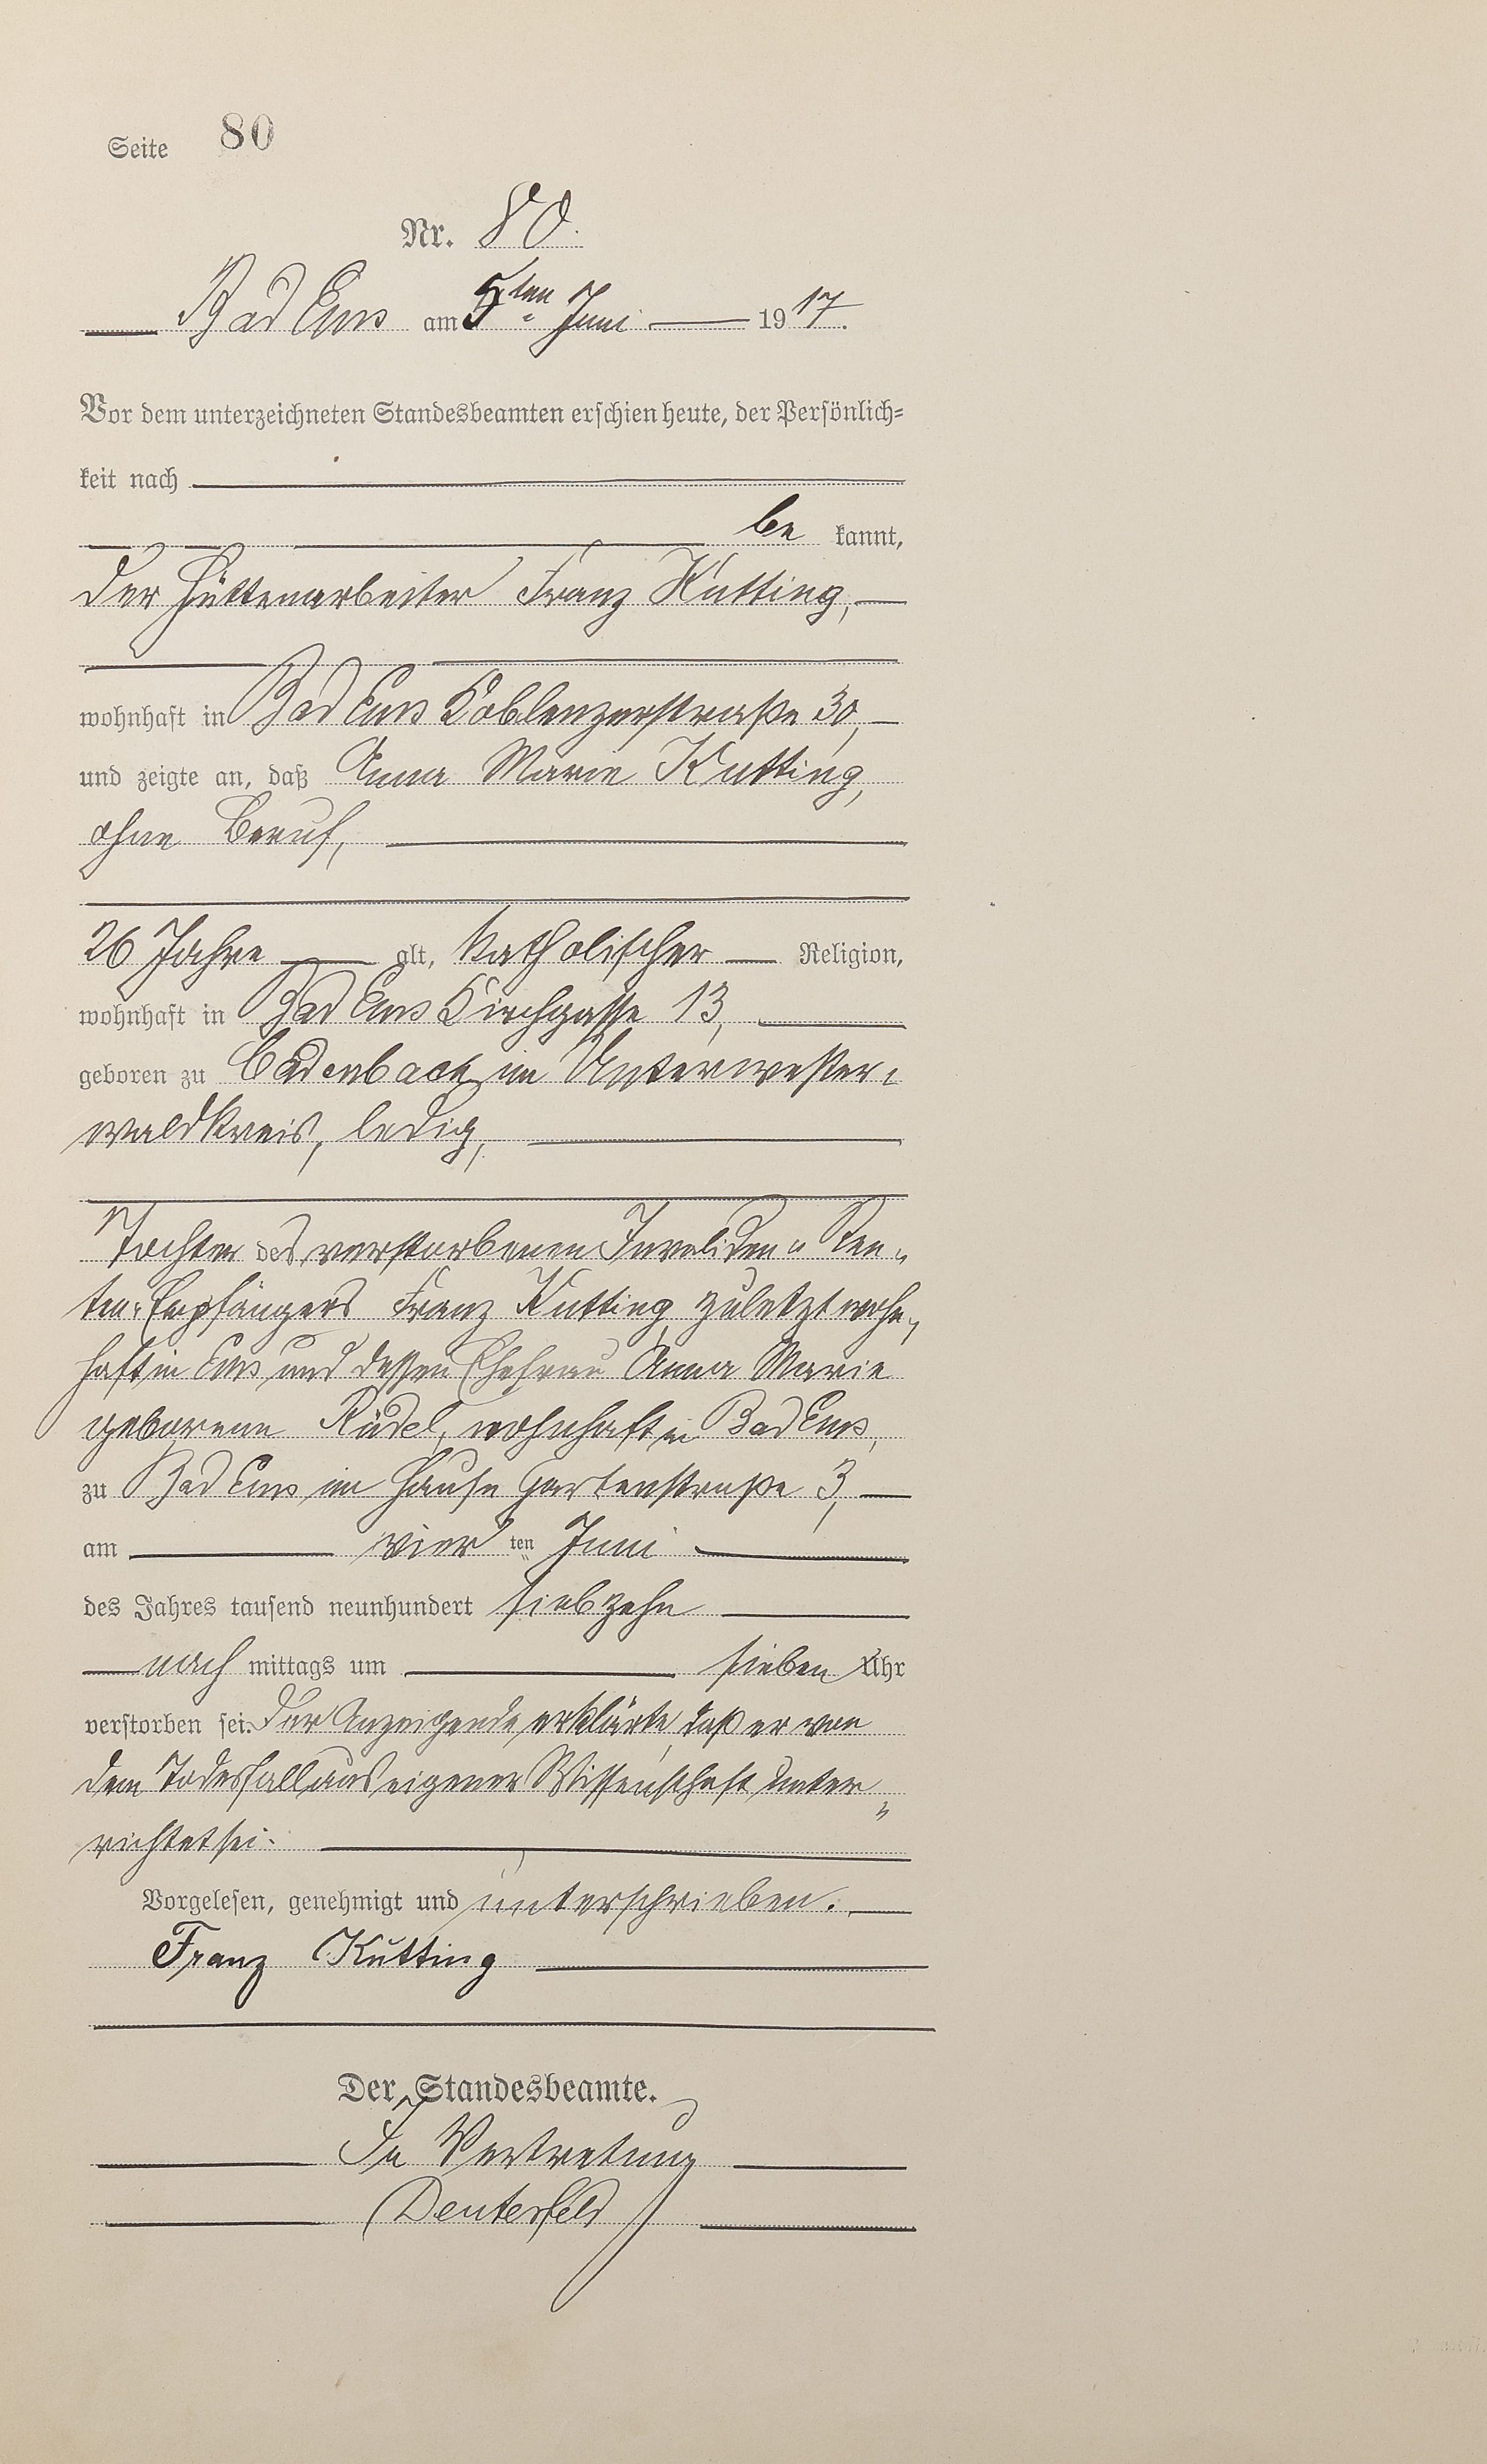 Seite 80
Nr. 80.
Bad Ems am 5ten Juni 1917.
Vor dem unterzeichneten Standesbeamten erschien heute, der Persönlich=
keit nach
be kannt,
der Hüttenarbeiter Franz Kutting,
wohnhaft in Bad Ems Coblenzerstraße 30,
und zeigte an, daß Anna Marie Kutting,
ohne Beruf,
26 Jahre alt, katholischer Religion,
wohnhaft in Bad Ems Kirchgasse 13,
geboren zu Cadenbach im Unterwester-
waldkreis, ledig,
Tochter des verstorbenen Invaliden- Ren-
ten-Empfängers Franz Kutting, zuletzt wohn-
haft in Ems und dessen Ehefrau Anna Marie
geborene Rüdel, wohnhaft in Bad Ems,
zu Bad Ems im Hause Gartenstraße 3,
am vier ten Juni
des Jahres tausend neunhundert siebzehn
nach mittags um sieben Uhr
verstorben sei. Der Anzeigende erklärte, daß er von
dem Todesfall aus eigener Wissenschaft unter-
richtet sei.
Vorgelesen, genehmigt und unterschrieben.
Franz Kutting
Der Standesbeamte.
In Vertretung